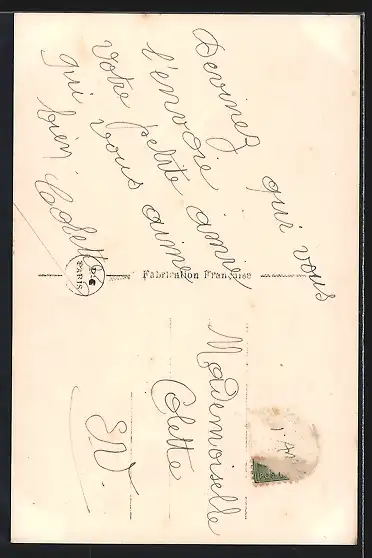 Devinez qui vous
l'envoie
votre petite amie
qui vous aime
bien Colette
Fabrication Française
D.G
PARIS
Mademoiselle
Colette
E.V.